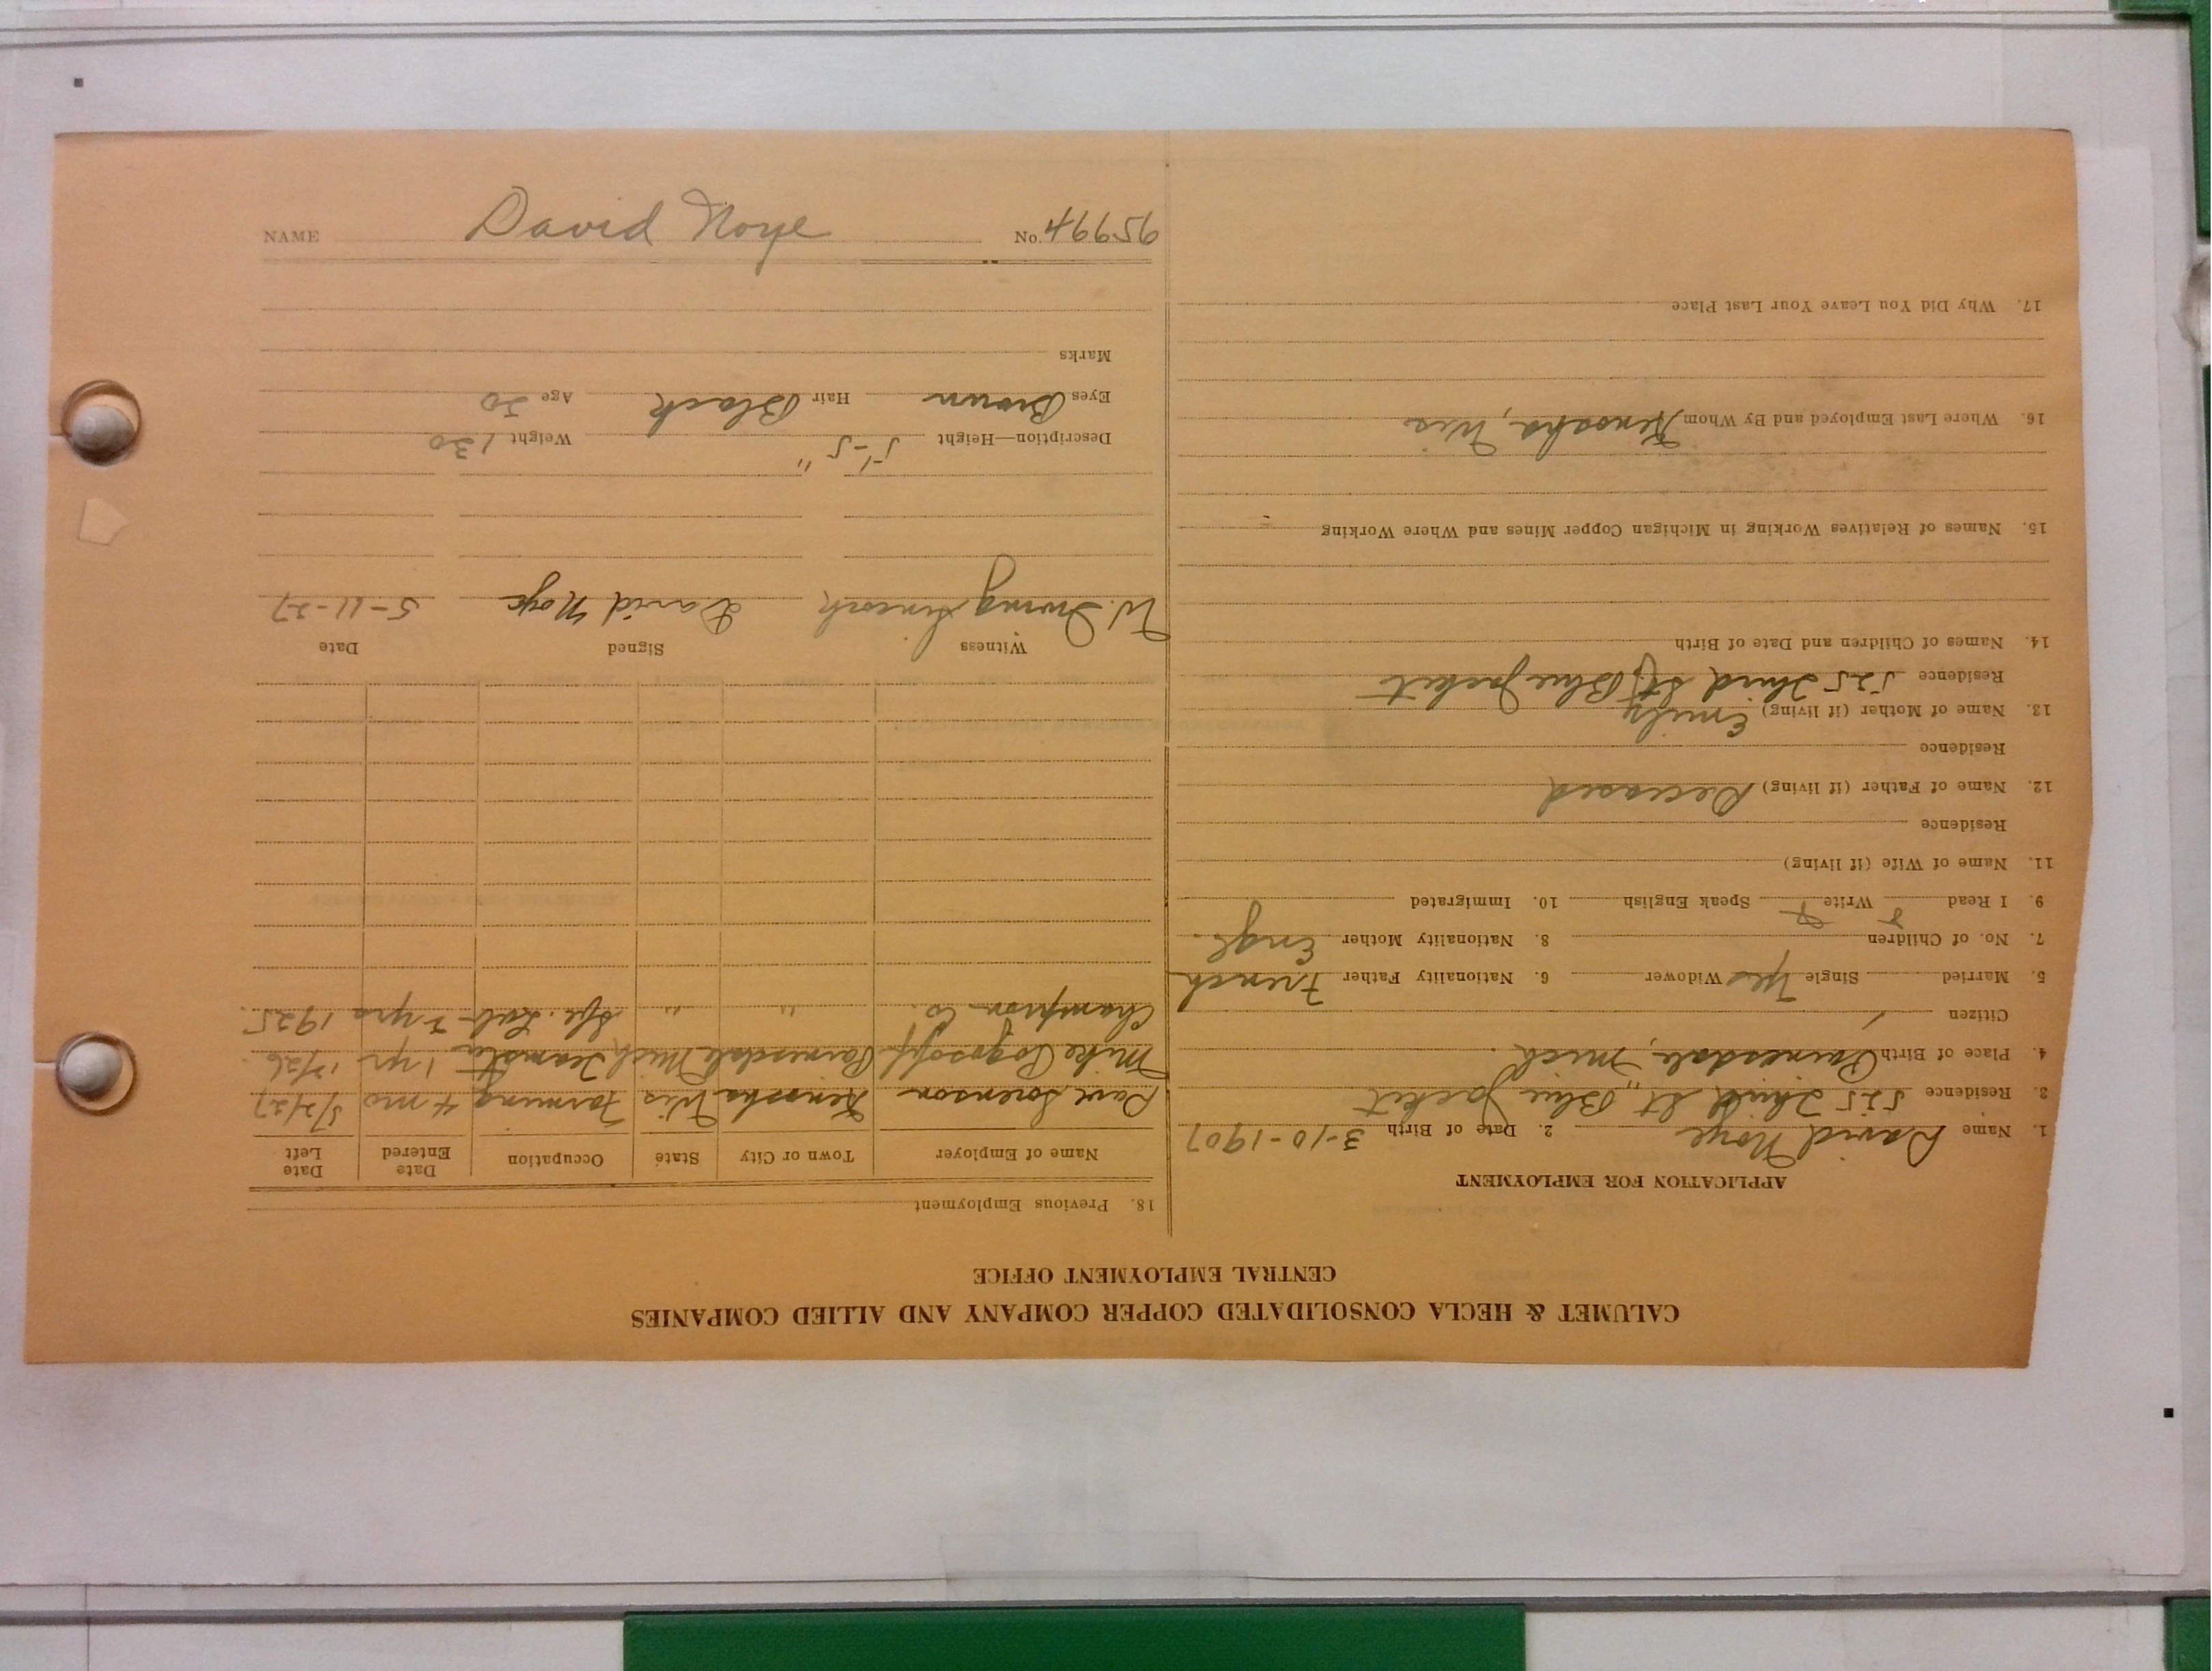 NAME David Noye No. 46656
CALUMET & HECLA CONSOLIDATED COPPER COMPANY AND ALLIED COMPANIES
CENTRAL EMPLOYMENT OFFICE
APPLICATION FOR EMPLOYMENT
1. Name David Noye 2. Date of Birth 3-10-1907
3. Residence 525 Third St., Blue Jacket
4. Place of Birth Painesdale, Mich.
Citizen /
5. Married Single Yes Widower 6. Nationality Father French
7. No. of Children 8. Nationality Mother Engl.
9. I Read Write Speak English 10. Immigrated
11. Name of Wife (if living)
Residence
12. Name of Father (if living) Deceased
Residence
13. Name of Mother (if living) Emily
Residence 525 Third St, Blue Jacket
14. Names of Children and Date of Birth
15. Names of Relatives Working in Michigan Copper Mines and Where Working -
16. Where Last Employed and By Whom Kenosha, Wis
17. Why Did You Leave Your Last Place
18. Previous Employment
Name of Employer Town or City State Occupation Date Entered Date Left
Dave Sorenson Kenosha Wis Farming 4 mo 5/2/27
Mike Painesdale Mich Teamster 1 yr
Champion Co. " " Sfc. Lab 2 yrs 1925.
Witness Signed Date
W. Irving David Noye 5-11-27
Description—Height 5'-5" Weight 130
Eyes Brown Hair Black Age 20
Marks